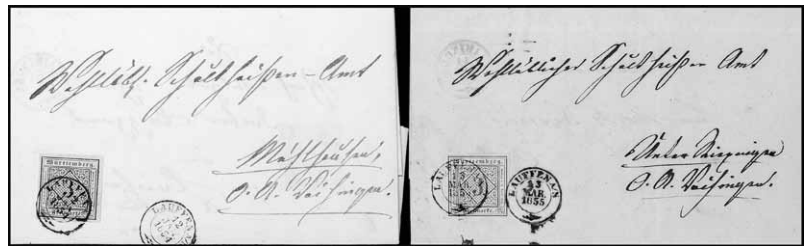 Wohllöbl. Schultheißen-Amt
Mühlhausen,
O. A. Vaihingen.
Württemberg.
LAUFFEN A/N
22
Wohllöblicher Schultheißen Amt
Unter Riexingen
O. A. Vaihingen.
Württemberg.
LAUFFEN
23
MÄR.
LAUFFEN A/N
23
MAR.
1855